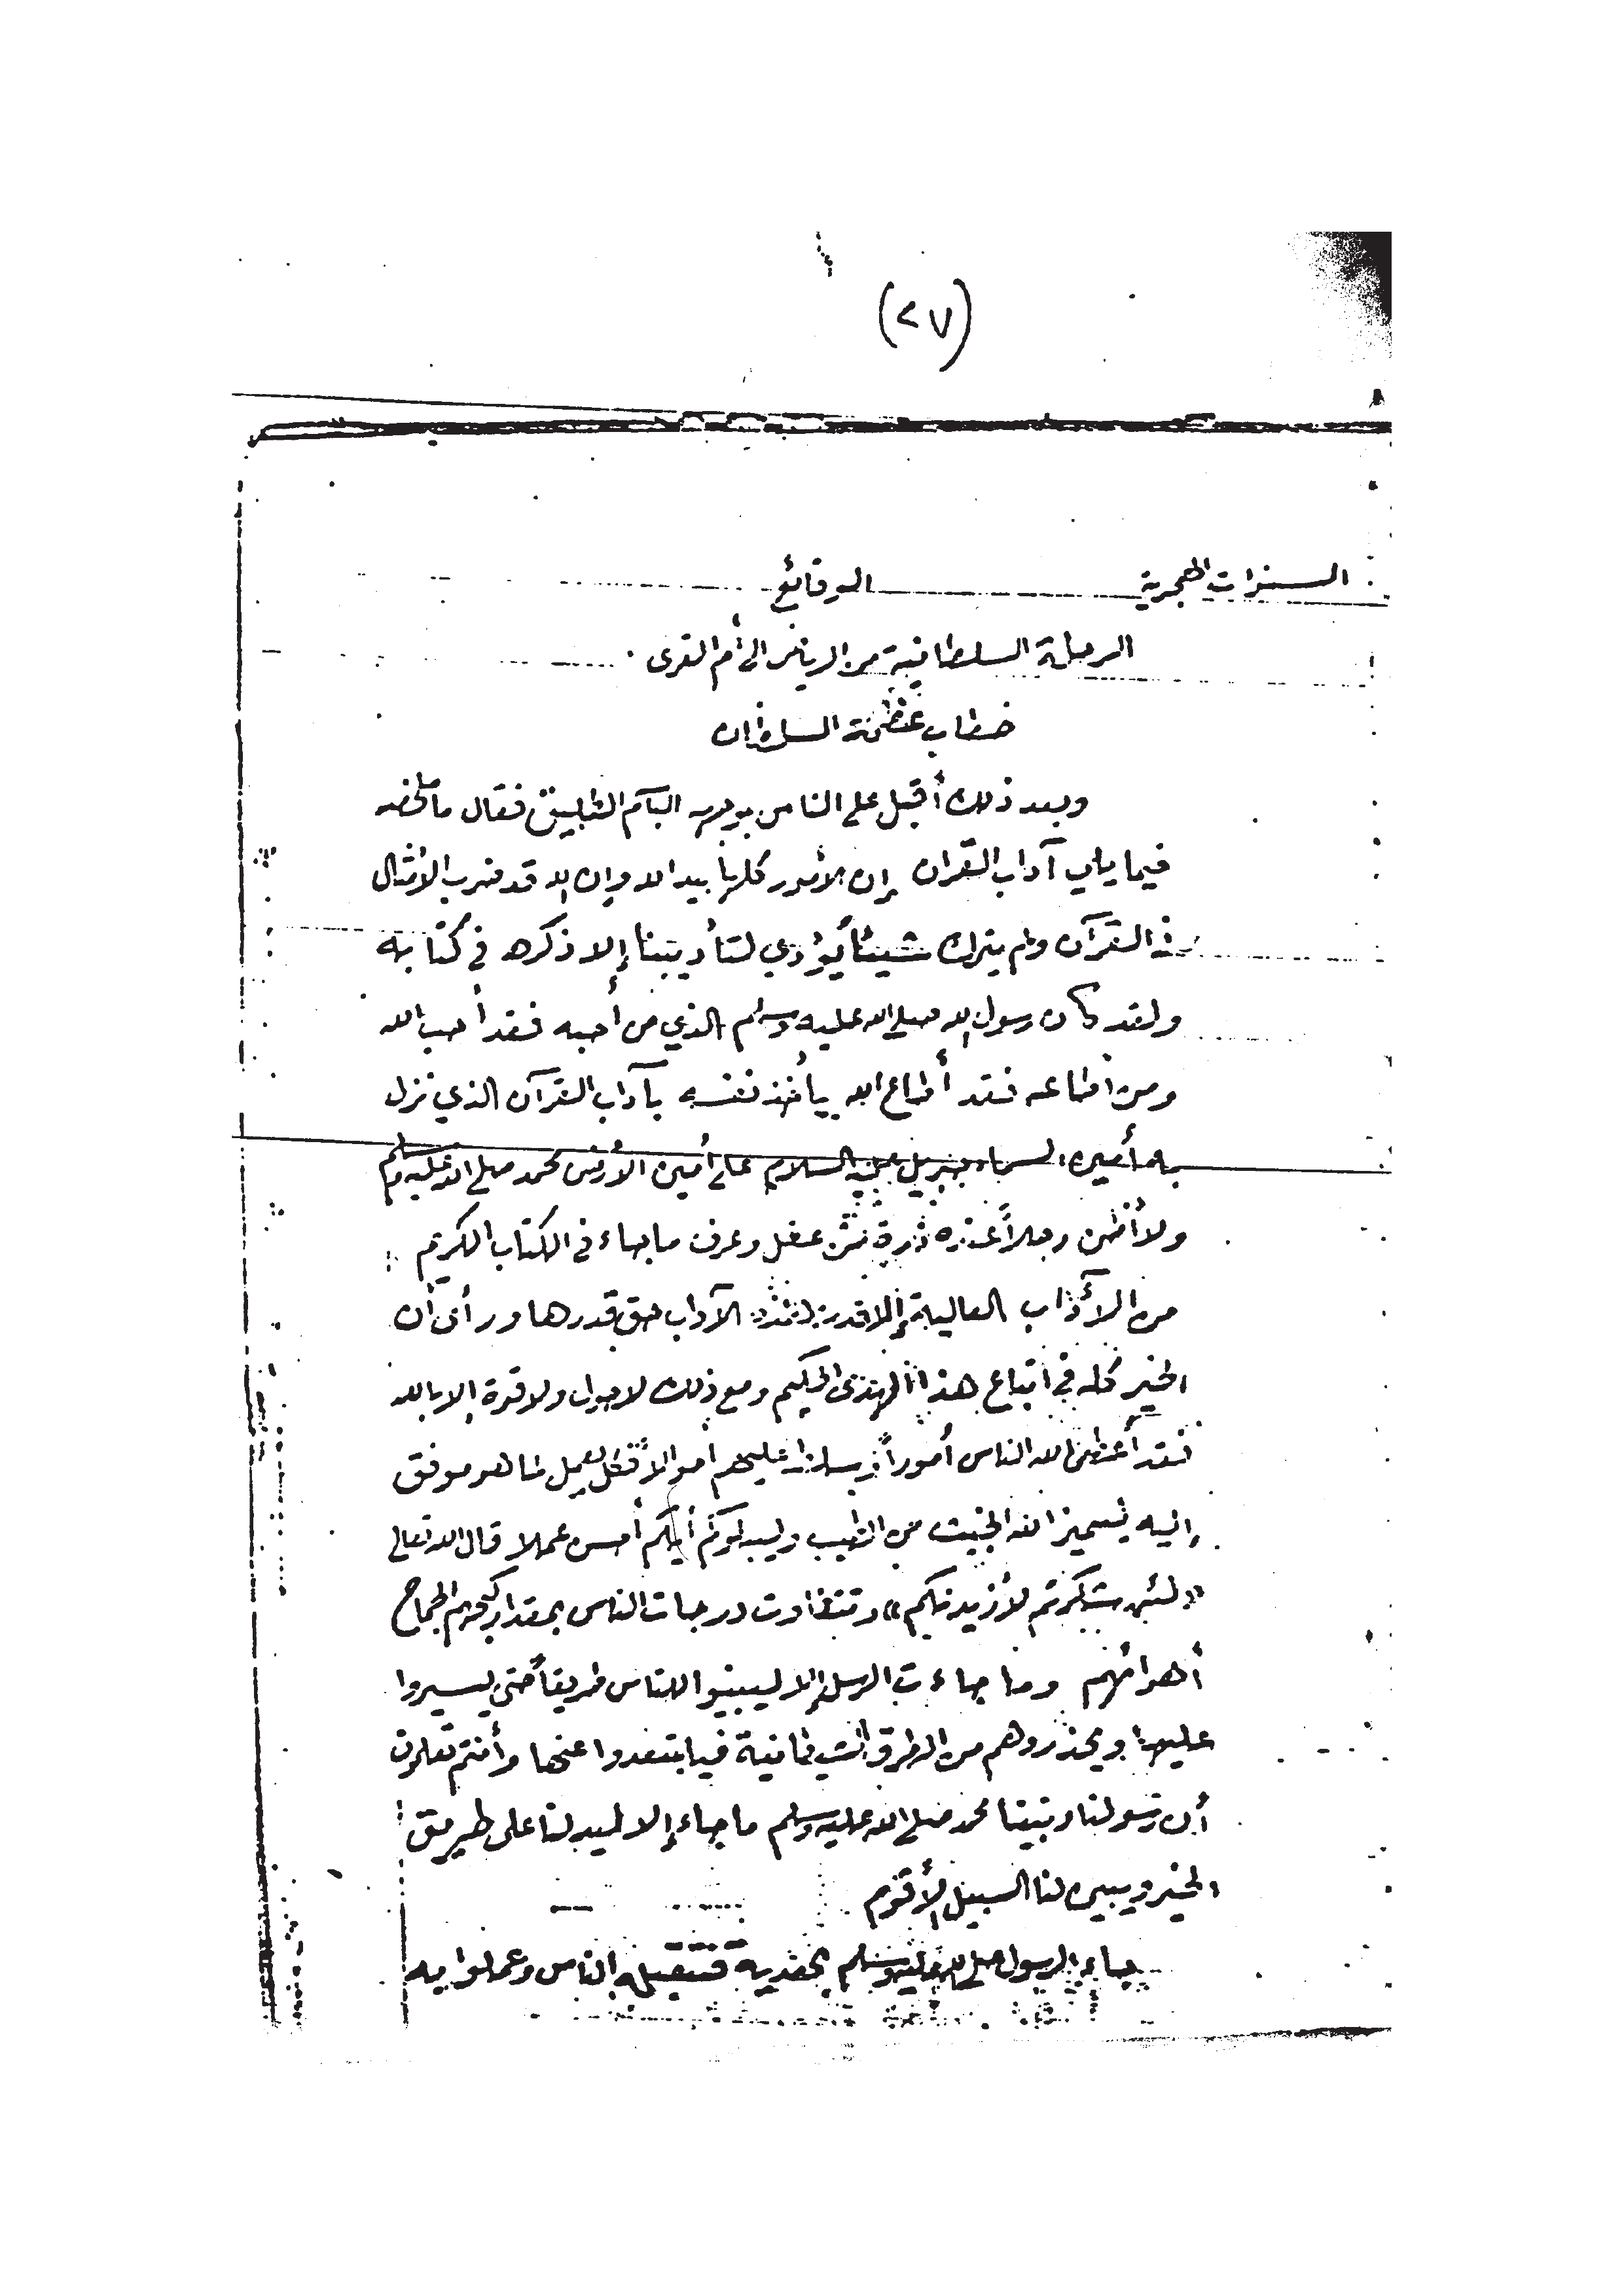 (٢٧)
السنوات الهجرية الوقائع
الرحلة السلطانية من الرياض الى أم القرى .
خطاب عظمة السلطان
وبعد ذلك أقبل على الناس بوجهه الباسم الطليق فقال ما ملخصه
فيما يلي آداب القرآن إن الأمور كلها بيد الله وإن الله قد ضرب الأمثال
في القرآن ولم يترك شيئاً يؤدي لتأديبنا إلا ذكره في كتابه
ولقد كان رسول الله صلى الله عليه وسلم الذي من أحبه فقد أحب الله
ومن اطاعه فقد أطاع الله يأخذ نفسه بآداب القرآن الذي نزل
به أمين السماء جبريل عليه السلام على أمين الأرض محمد صلى الله عليه وسلم
ولا أظن رجلاً عنده ذرة من عقل وعرف ما جاء في الكتاب الكريم
من الأداب العالية إلا قدر هذه الآداب حق قدرها ورأى أن
الخير كله في اتباع هذا الهدى الحكيم ومع ذلك لا حول ولا قوة إلا بالله
فقد أعطى الله الناس أموراً عليهم أموالاً فكل يعمل لما هو موفق
إليه ليميز الله الخبيث من الطيب وليبلوكم أيكم أحسن عملا قال الله تعالى
«لئن شكرتم لأزيدنكم» وتتفاوت درجات الناس بمقدار كبحهم لجماح
أهوائهم وما جاءت الرسل إلا ليبينوا للناس طريقاً حتى يسيروا
عليها ويحذروهم من الطرق الشيطانية فيبتعدوا عنها وأنتم تعلمون
أن رسولنا ونبينا محمد صلى الله عليه وسلم ما جاء إلا ليدلنا على طريق
الخير ويبين لنا السبيل الأقوم
جاء الرسول صلى الله عليه وسلم بهديه فتقبله الناس وعملوا به